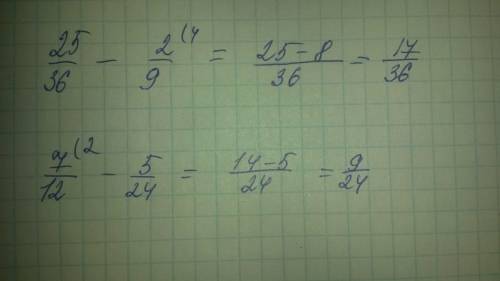 25/36 - 2(4/9 = 25-8/36 = 17/36
7(2/12 - 5/24 = 14-5/24 = 9/24